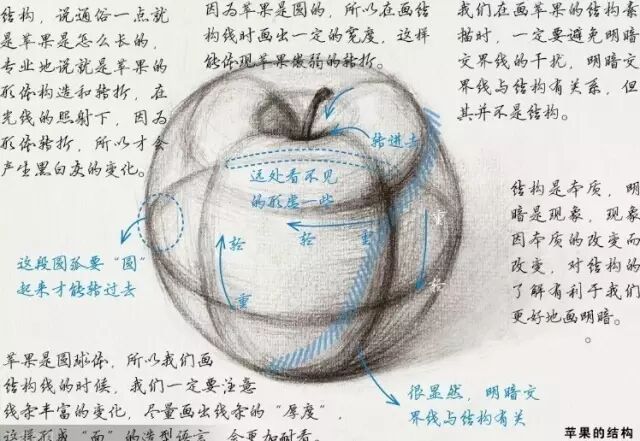 结构，说通俗一点就
是苹果是怎么长的，
专业地说就是苹果的
形体构造和转折，在
光线的照射下，因为
形体转折，所以才会
产生黑白灰的变化。
因为苹果是圆的，所以在画结
构线时画出一定的宽度，这样
能体现苹果微弱的转折。
我们在画苹果的结构素
描时，一定要避免明暗
交界线的干扰，明暗交
界线与结构有关系，但
其并不是结构。
转进去
远处看不见
的形虚一些
轻
轻
重
重
重
轻
结构是本质，明
暗是现象，现象
因本质的改变而
改变，对结构的
了解有利于我们
更好地画明暗。
这段圆弧要“圆”
起来才能转过去
苹果是圆球体，所以我们画
结构线的时候，我们一定要注意
线条丰富的变化，尽量画出线条的“厚度”，
这样形成“面”的造型语言，会更加耐看。
很显然，明暗交
界线与结构有关
苹果的结构